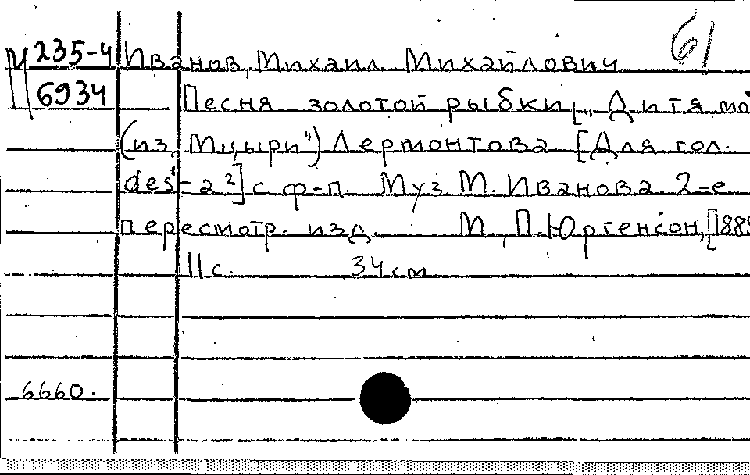 61
М 235-4 Иванов, Михаил Михайлович
6934 Песня золотой рыбки [„Дитя мо
(из „Мцыри") Лермонтова [Для гол.
des¹-a²] с ф-п. Муз М. Иванова 2-е
пересмотр. изд. М., П. Юргенсон, [188
11 с. 34 см
6660.